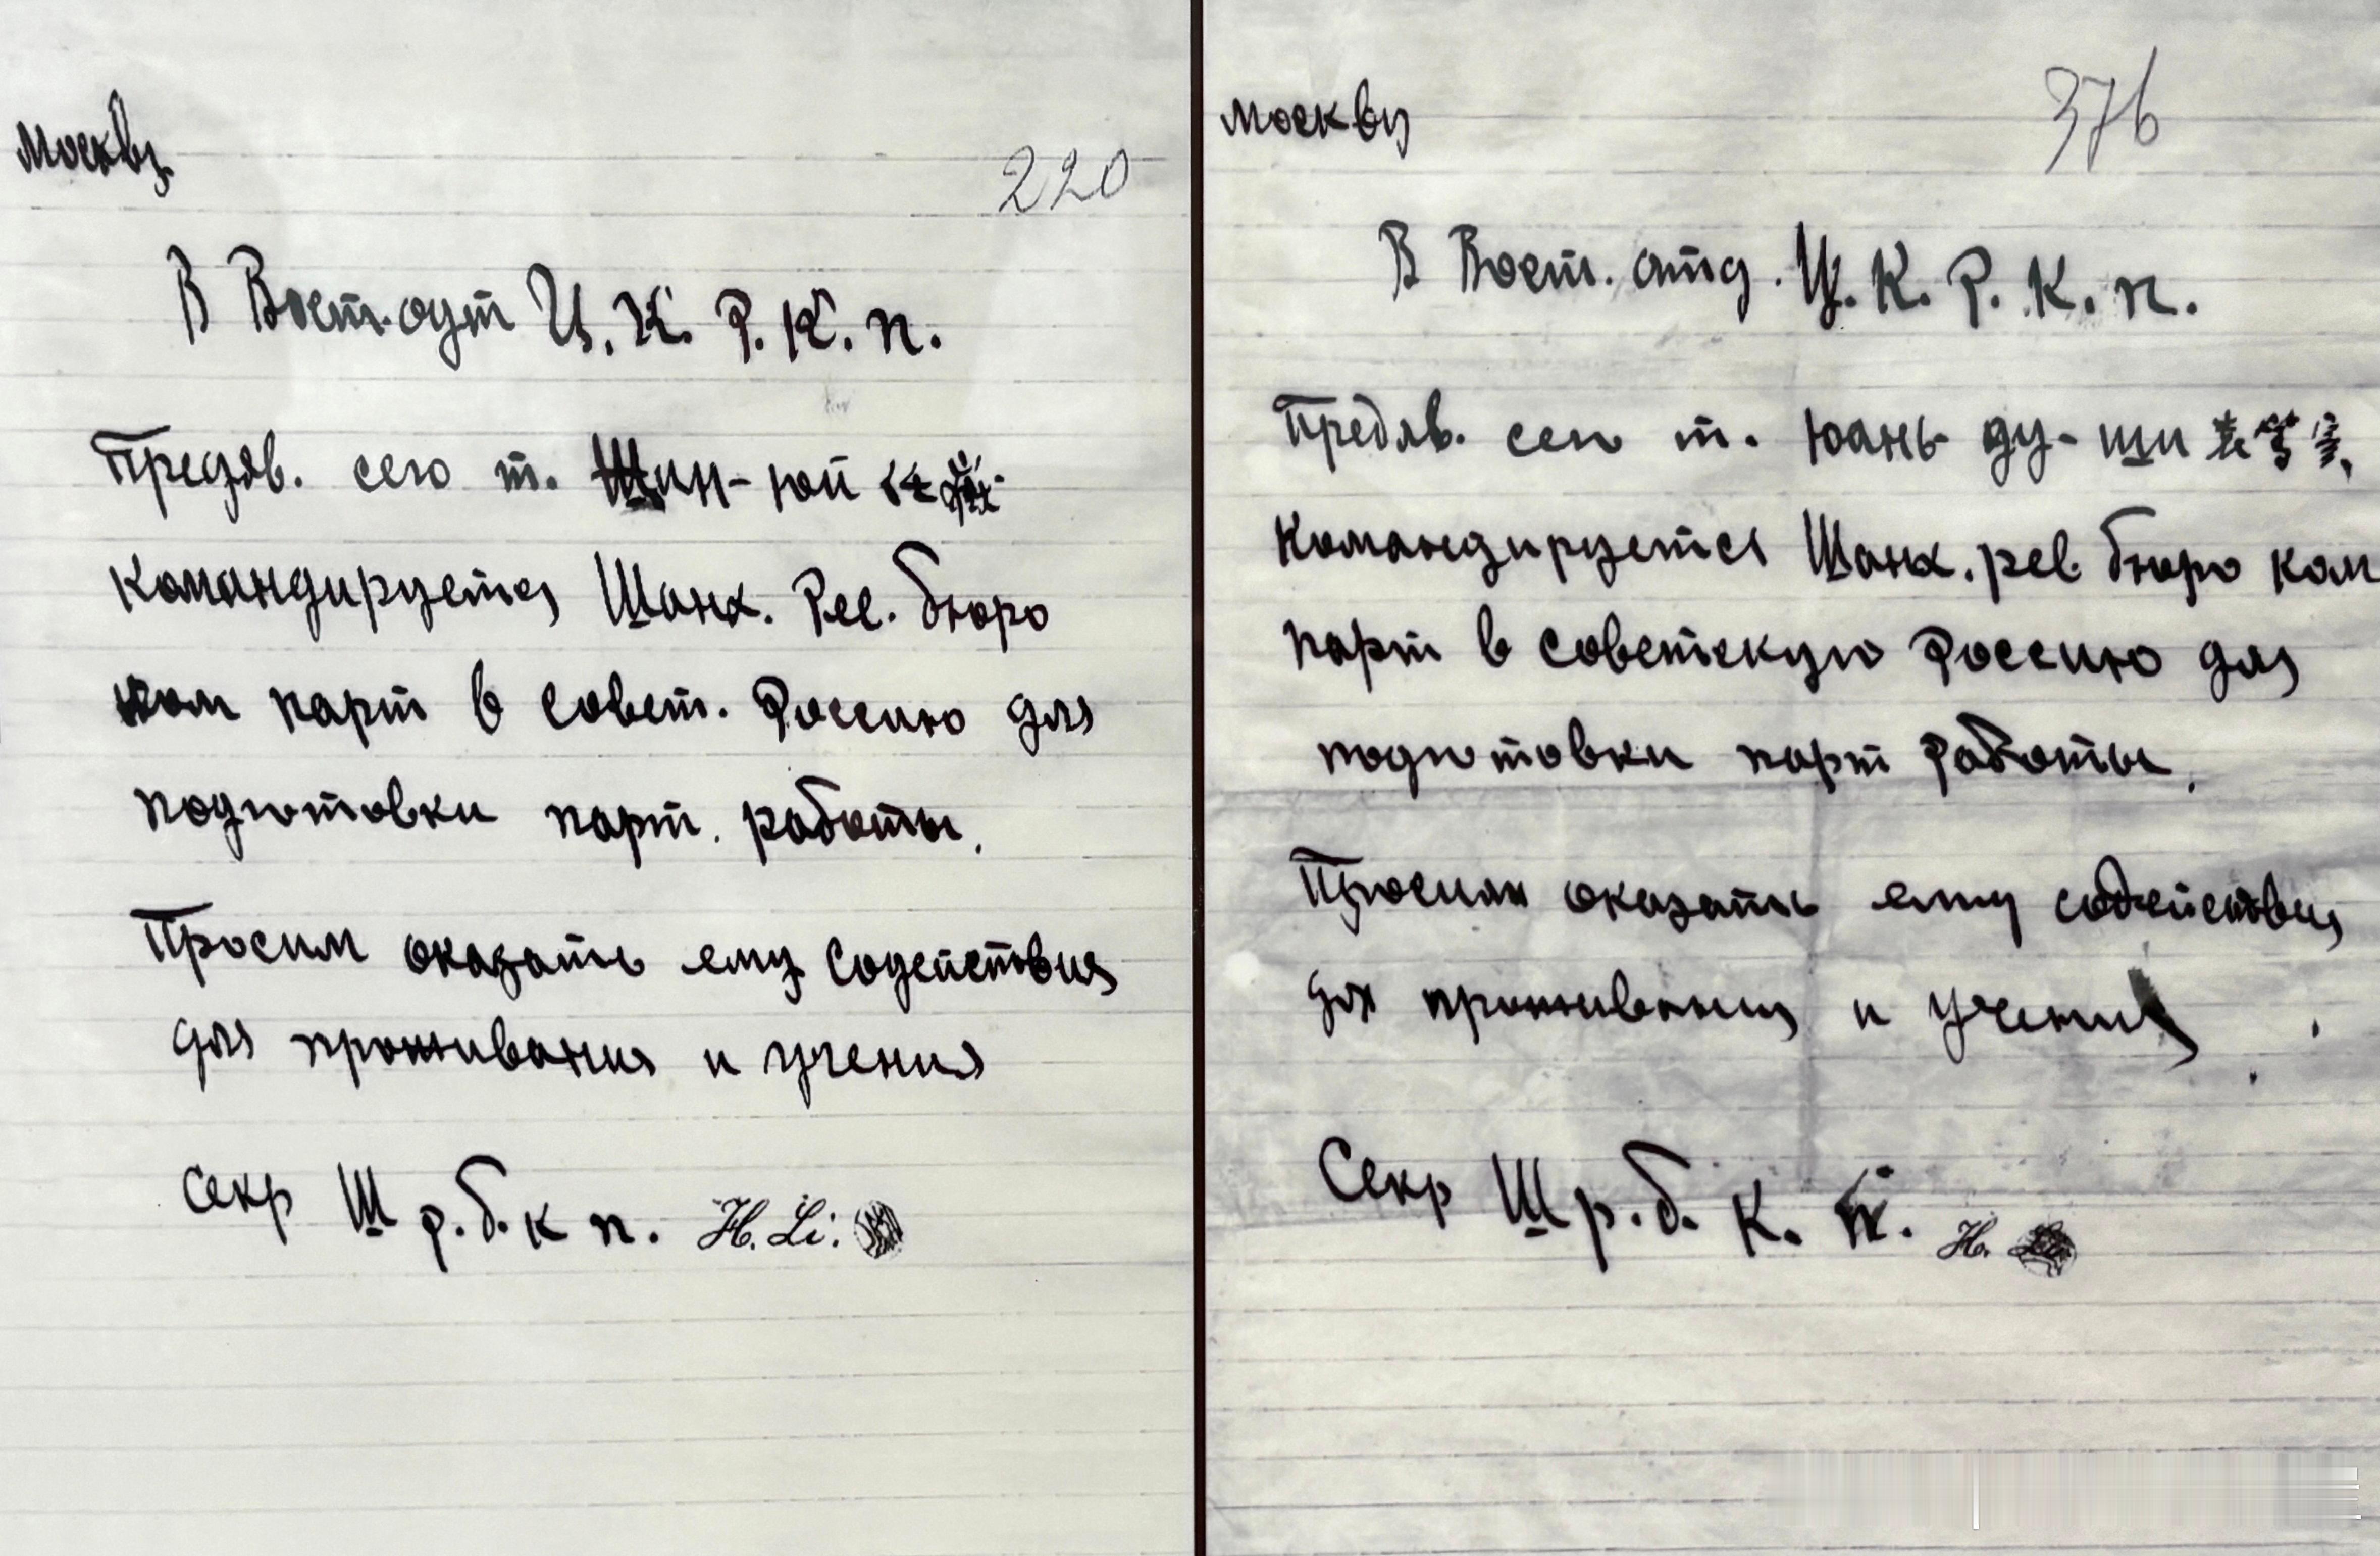 Москву
220
В Вост. оут Ц. К. Р. К. п.
Предяв. сего т. Шин-юй
командируется Шанх. Рев. бюро
ком парт в совет. Россию для
подготовки парт. работы.
Просим оказать ему содействия
для проживания и учения
Секр Ш р. б. к п. H. Li.
Москву
376
В Вост. отд. Ц. К. Р. К. п.
Предяв. сего т. Юань-ду-ши
командируется Шанх. рев. бюро ком
парт в советскую Россию для
подготовки парт работы.
Просим оказать ему содействия
для проживания и учения.
Секр Ш р. б. К. п. H.